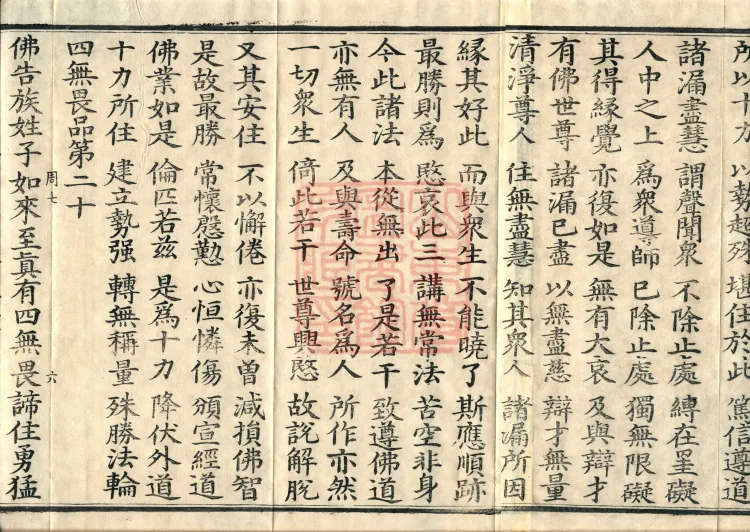 所以十力 以勢起殊 堪住於此 篤信遵道
諸漏盡慧 謂聲聞衆 不除止處 縛在罣礙
人中之上 爲衆導師 已除止處 獨無限礙
其得緣覺 亦復如是 無有大哀 及與辯才
有佛世尊 諸漏已盡 以無盡慈 辯才無量
清淨尊人 住無盡慧 知其衆人 諸漏所因
緣其好此 而與衆生 不能曉了 斯應順跡
最勝則爲 愍哀此三 講無常法 苦空非身
今此諸法 本從無出 了是若干 致遵佛道
亦無有人 及與壽命 號名爲人 所作亦然
一切衆生 倚此若干 世尊興愍 故說解脫
又其安住 不以懈倦 亦復未曾 減損佛智
是故最勝 常懷慇懃 心恒憐傷 頒宣經道
佛業如是 倫匹若茲 是爲十力 降伏外道
十力所住 建立勢强 轉無稱量 殊勝法輪
四無畏品第二十
周七 六
佛告族姓子如來至眞有四無畏諦住勇猛